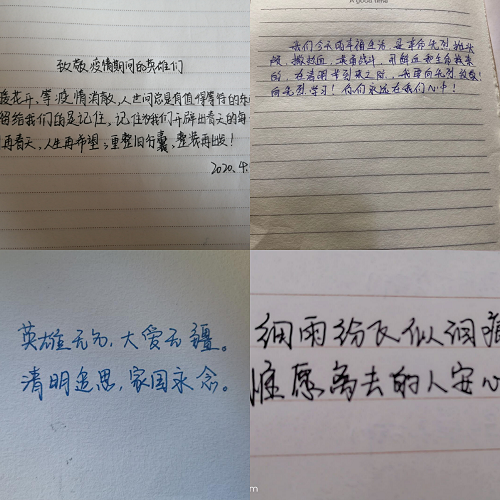 致敬疫情期间的英雄们
暖花开,等疫情消散,人世间总是有值得等待的东
将给我们的是记住,记住为我们开辟出春天的每
再春天,人生再希望,重整旧行囊,整装再出发!
2020.4.
A good time
我们今天的幸福生活,是革命先烈抛头
颅,撒热血,英勇战斗,用鲜血和生命换来
的,在清明节到来之际,我要向先烈致敬!
向先烈学习!你们永远在我们心中!
英雄无名,大爱无疆。
清明追思,家国永念。
细雨纷飞似泪痕
惟愿离去的人安心
m